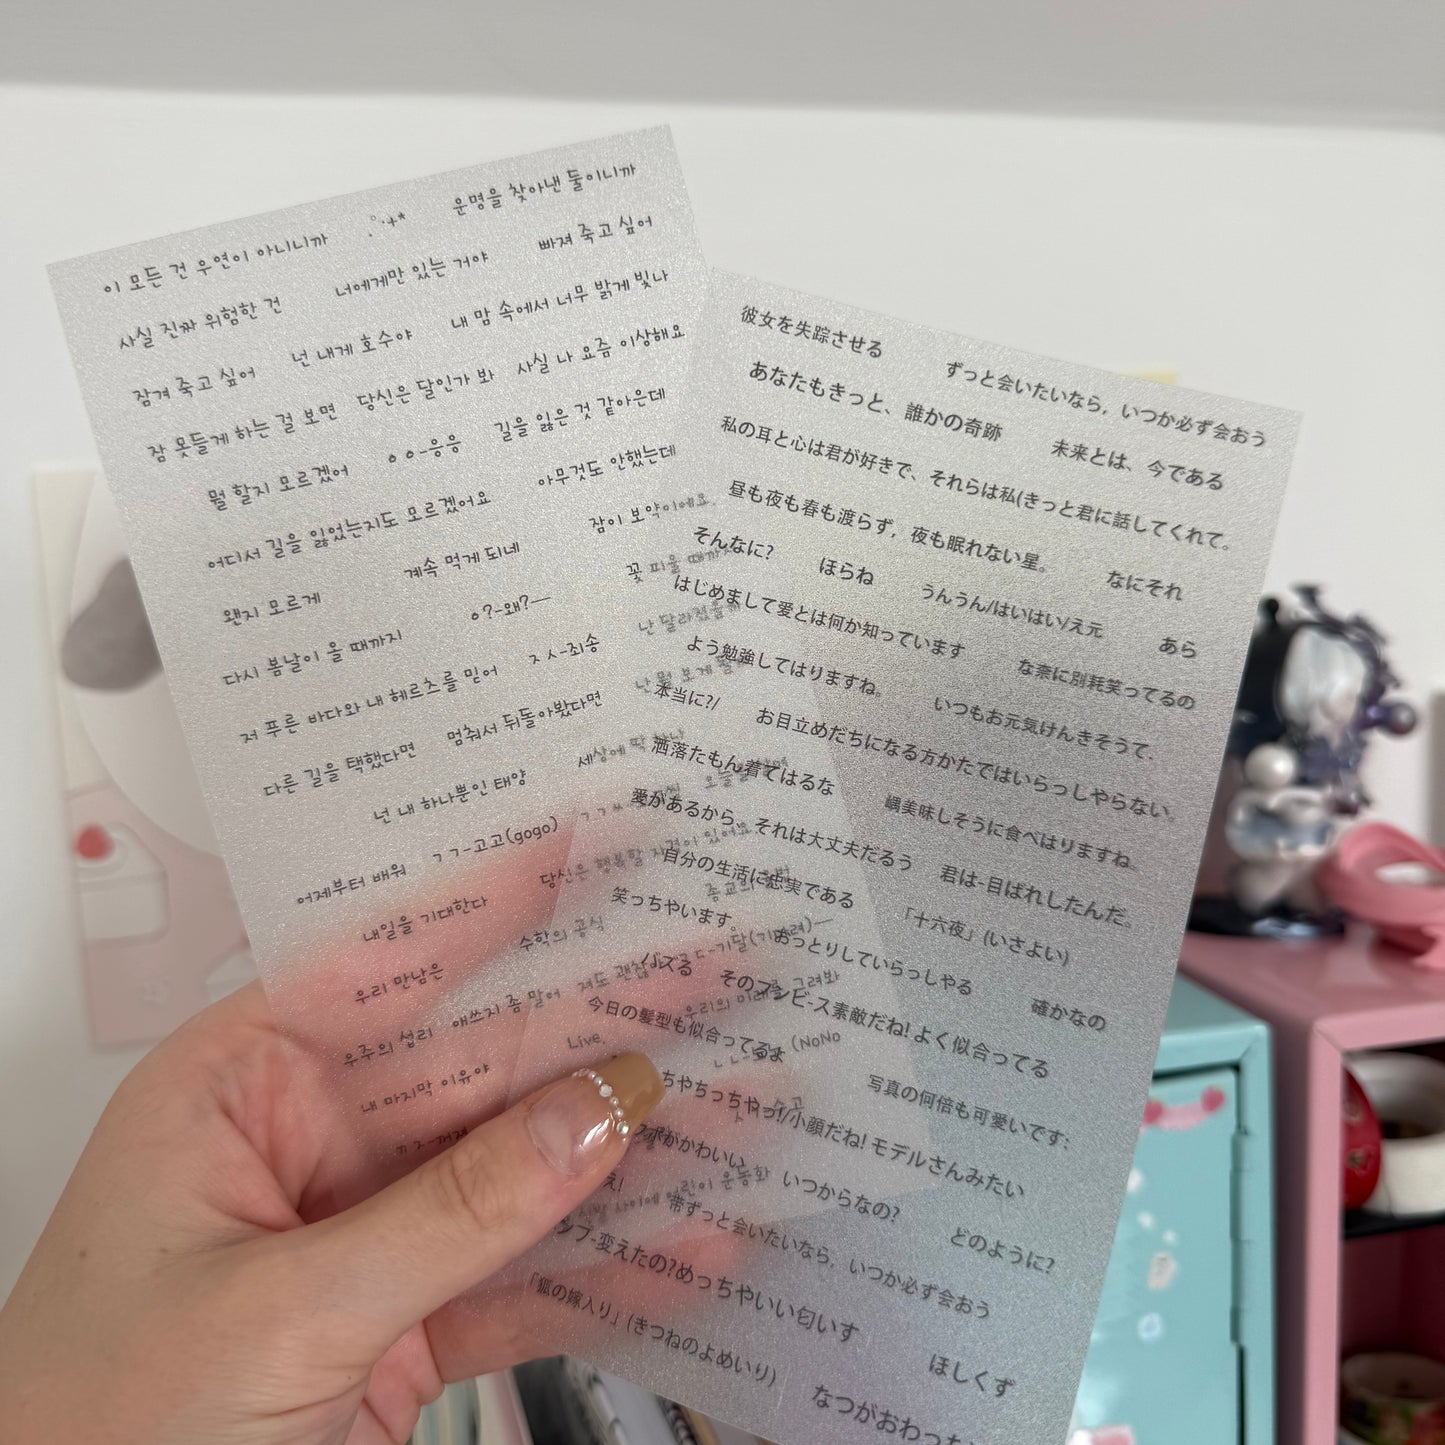 이 모든 건 우연이 아니니까 운명을 찾아낸 둘이니까
사실 진짜 위험한 건 너에게만 있는 거야 빠져 죽고 싶어
잠겨 죽고 싶어 넌 내게 호수야 내 맘 속에서 너무 밝게 빛나
잠 못들게 하는 걸 보면 당신은 달인가 봐 사실 나 요즘 이상해요
뭘 할지 모르겠어 ㅇㅇ-응응 길을 잃은 것 같아은데
어디서 길을 잃었는지도 모르겠어요 아무것도 안했는데
왠지 모르게 계속 먹게 되네 잠이 보약이에요
다시 봄날이 올 때까지 ㅇ?-왜?— 꽃 피울 때까지
저 푸른 바다와 내 헤르츠를 믿어 ㅈㅅ-죄송 난 달라졌을
다른 길을 택했다면 멈춰서 뒤돌아봤다면 난 뭘 보게 될
넌 내 하나뿐인 태양 세상에 딱 하나
어제부터 배워 ㄱㄱ-고고(gogo)
내일을 기대한다 당신은 행복할 자격이 있어요
우리 만남은 수학의 공식 종교의
우주의 섭리 애쓰지 좀 말어 져도 괜찮 ㄷ-기달(기다려)—
내 마지막 이유야 Live. 우리의 미래를 그려봐
ㄲㅈ-꺼져 ㄴㄴ (NoNo
사이에 어린이 운동화
彼女を失踪させる ずっと会いたいなら，いつか必ず会おう
あなたもきっと、誰かの奇跡 未来とは、今である
私の耳と心は君が好きで、それらは私(きっと君に話してくれて。
昼も夜も春も渡らず，夜も眠れない星。 なにそれ
そんなに? ほらね うんうん/はいはい/え元 あら
はじめまして愛とは何か知っています な奈に別耗笑ってるの
よう勉強してはりますね。 いつもお元気けんきそうて.
本当に?/ お目立めだちになる方かたではいらっしやらない。
洒落たもん着てはるな 鯛美味しそうに食べはりますね。
愛があるから、それは大丈夫だるう 君は-目ばれしたんだ。
自分の生活に忠実である 「十六夜」(いさよい)
笑っちやいます。 おっとりしていらっしやる 確かなの
バズる そのワンビ-ス素敵だね! よく似合ってる
今日の髪型も似合ってるよ 写真の何倍も可愛いです:
ちやちっちやっ!/小顔だね! モデルさんみたい
がかわいい いつからなの? どのように?
え! 帯ずっと会いたいなら，いつか必ず会おう
ンプ-変えたの?めっちやいい匂いす ほしくず
「狐の嫁入り」(きつねのよめいり) なつがおわっ